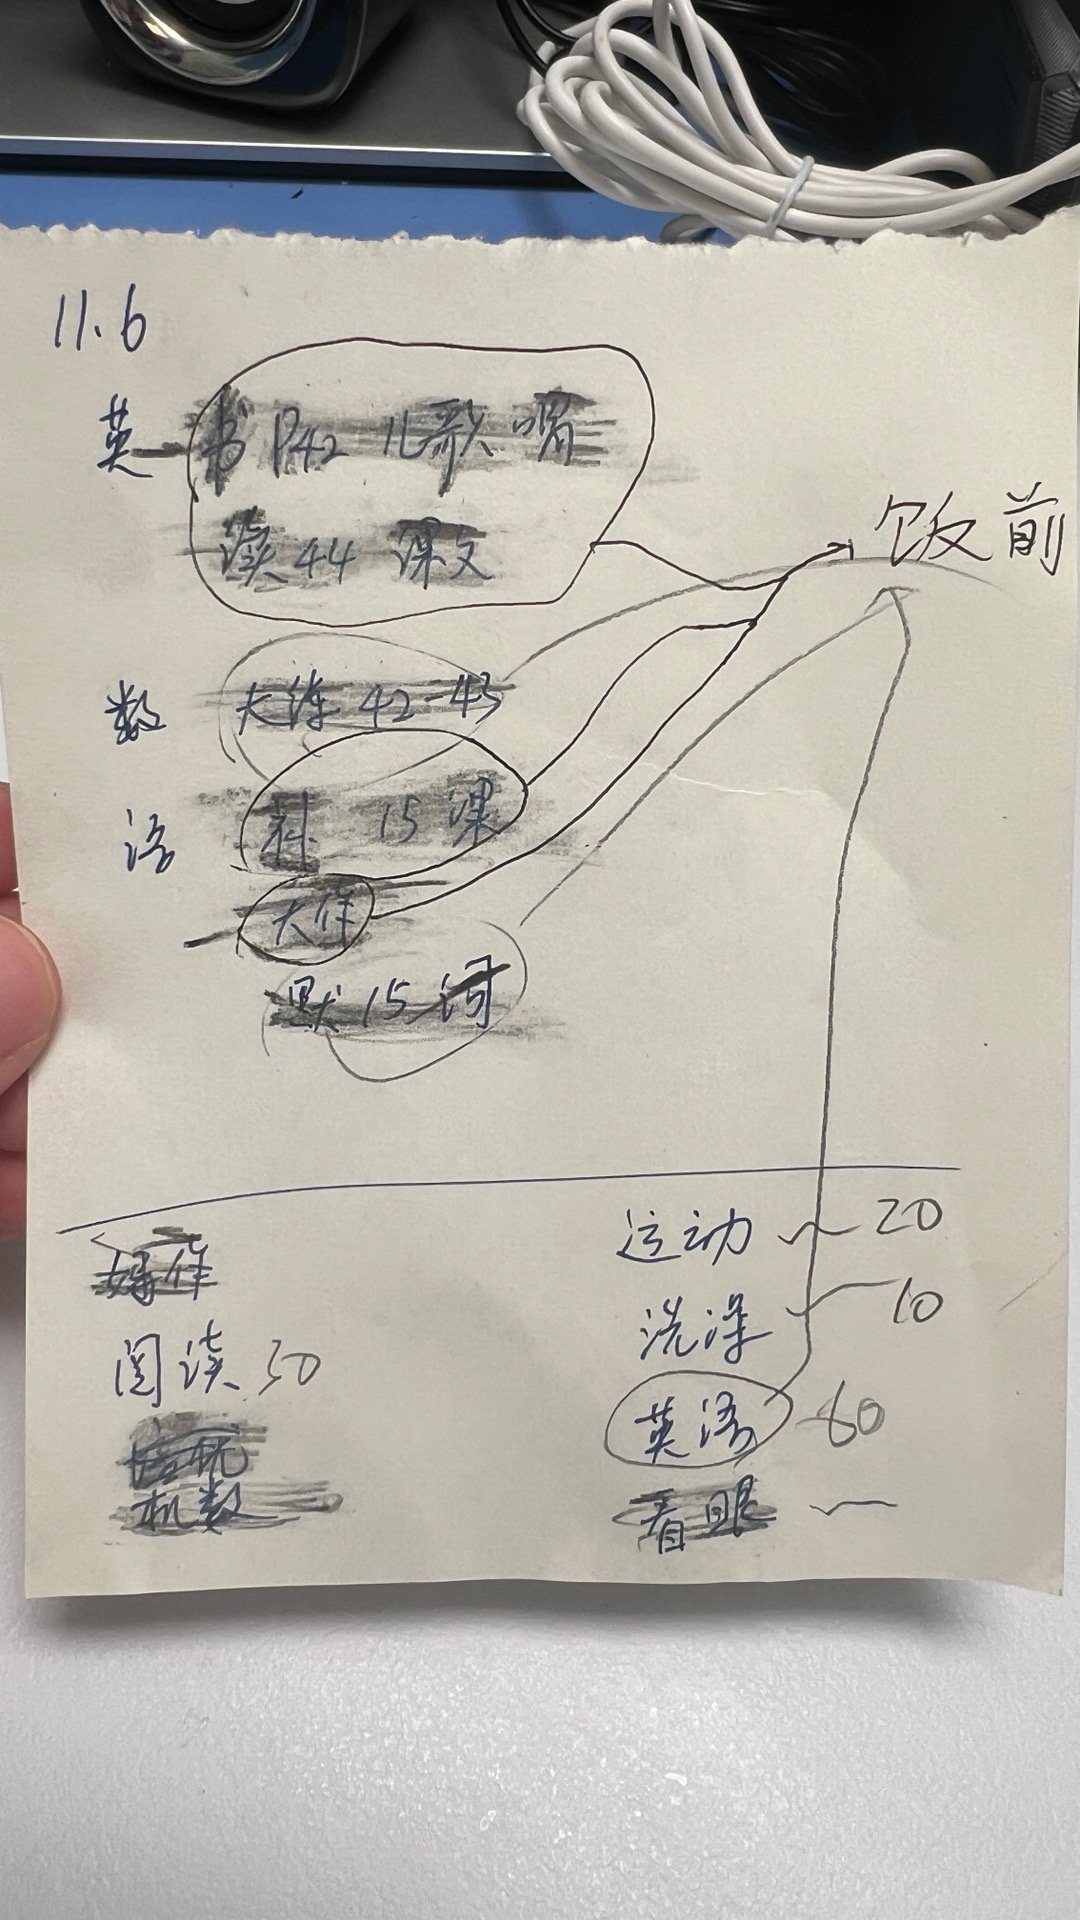 11.6
英 书 P42 儿歌
读 44 课文
饭前
数 大练 42-43
语 补 15 课
大作
默 15 词
操作
阅读 30
机数
运动 20
洗澡 10
英语 60
看眼